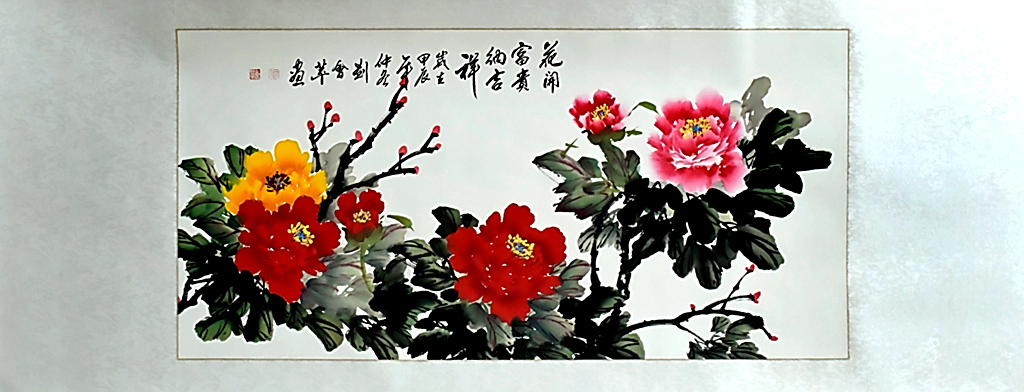 花開
富貴
納吉
祥
歲在
甲辰
年
仲冬
劉
會
萃
畫